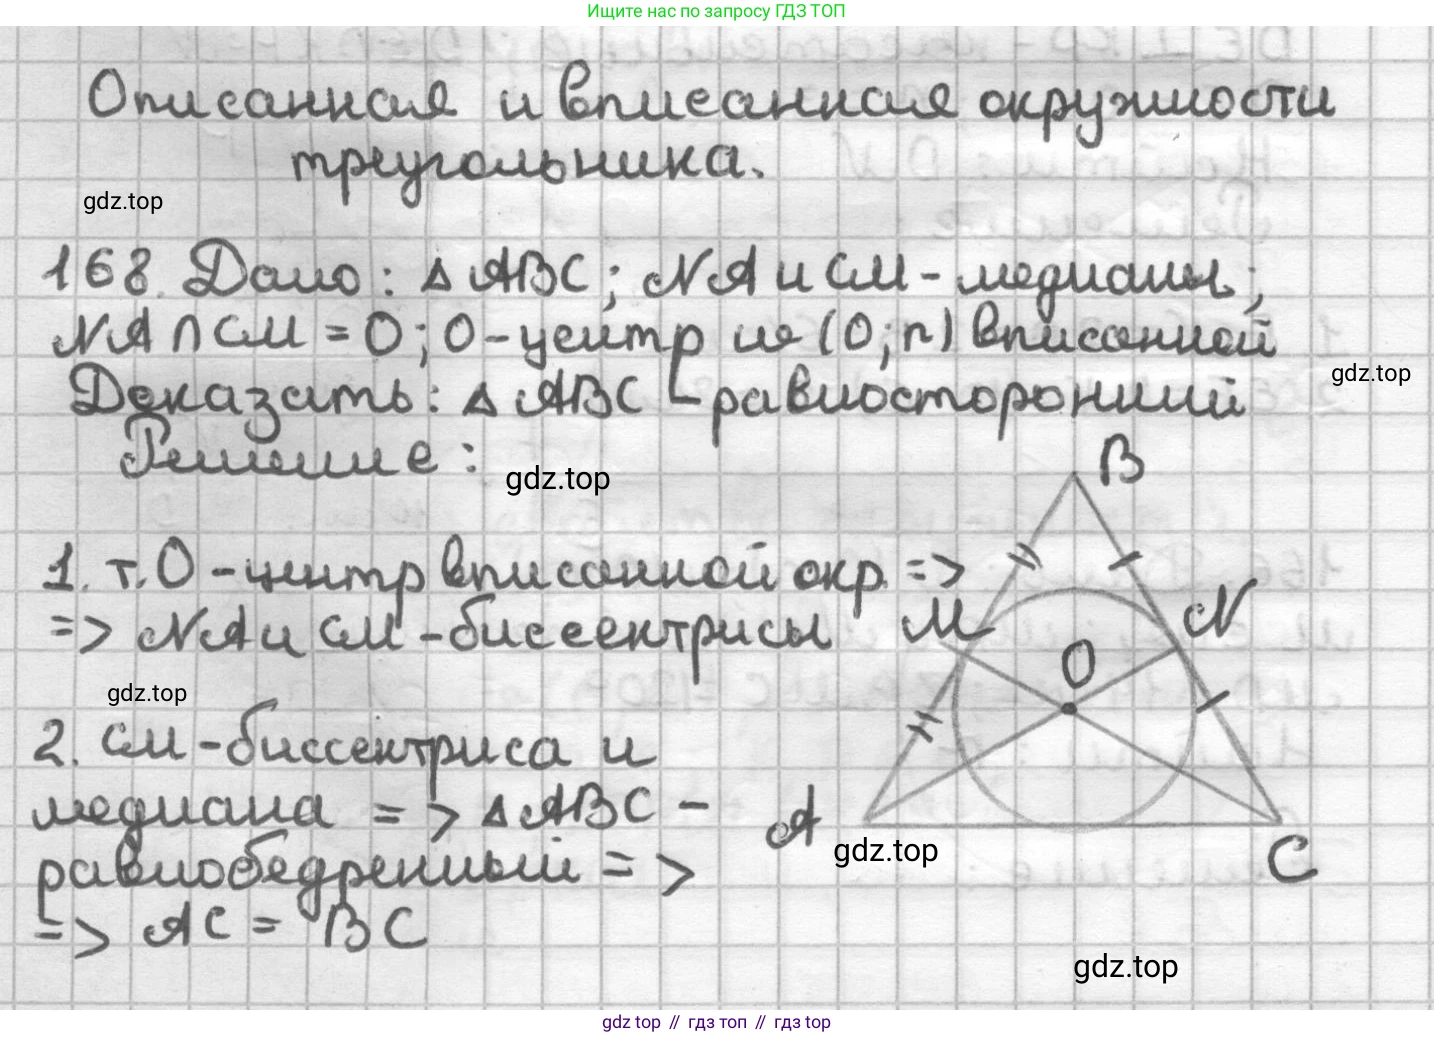 Ищите нас по запросу ГДЗ ТОП
Описанная и вписанная окружности
треугольника.
gdz.top
168. Дано: △ABC; NA и CM - медианы;
NA ∩ CM = O; O - центр (O; r) вписанной
gdz.top
Доказать: △ABC - равносторонний
Решение:
gdz.top
B
1. т. O - центр вписанной окр. =>
=> NA и CM - биссектрисы
M
N
O
gdz.top
2. CM - биссектриса и
медиана => △ABC -
A
gdz.top
C
равнобедренный =>
=> AC = BC
gdz.top
gdz top // гдз топ // gdz top